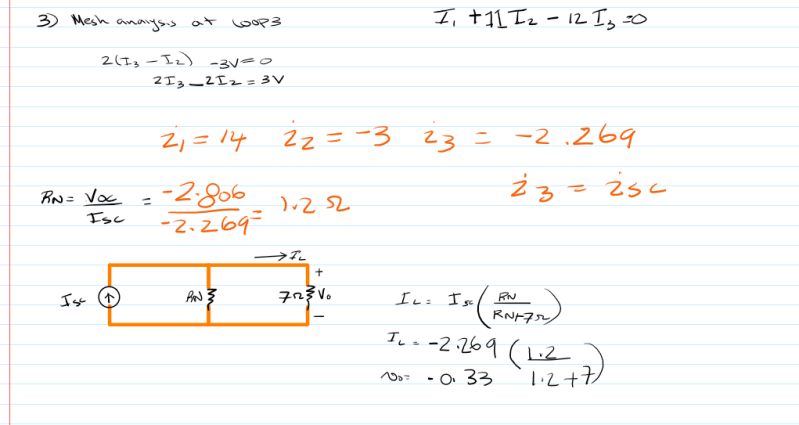 3) Mesh analysis at Loop3
I1 + 11I2 - 12I3 = 0
2(I3 - I2) -3V = 0
2I3 - 2I2 = 3V
i1 = 14 i2 = -3 i3 = -2.269
i3 = isc
RN = Voc/Isc = -2.806/-2.269 = 1.2 Ω
→ IL
+
Isc ↑ RN 7Ω Vo
−
IL = Isc (RN/RN+7Ω)
IL = -2.269 (1.2/1.2+7)
vo= -0.33